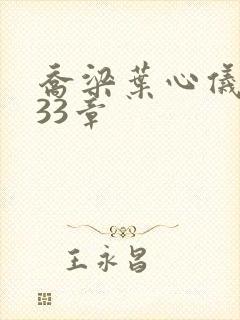 乔梁葉心儀
33章
王永昌